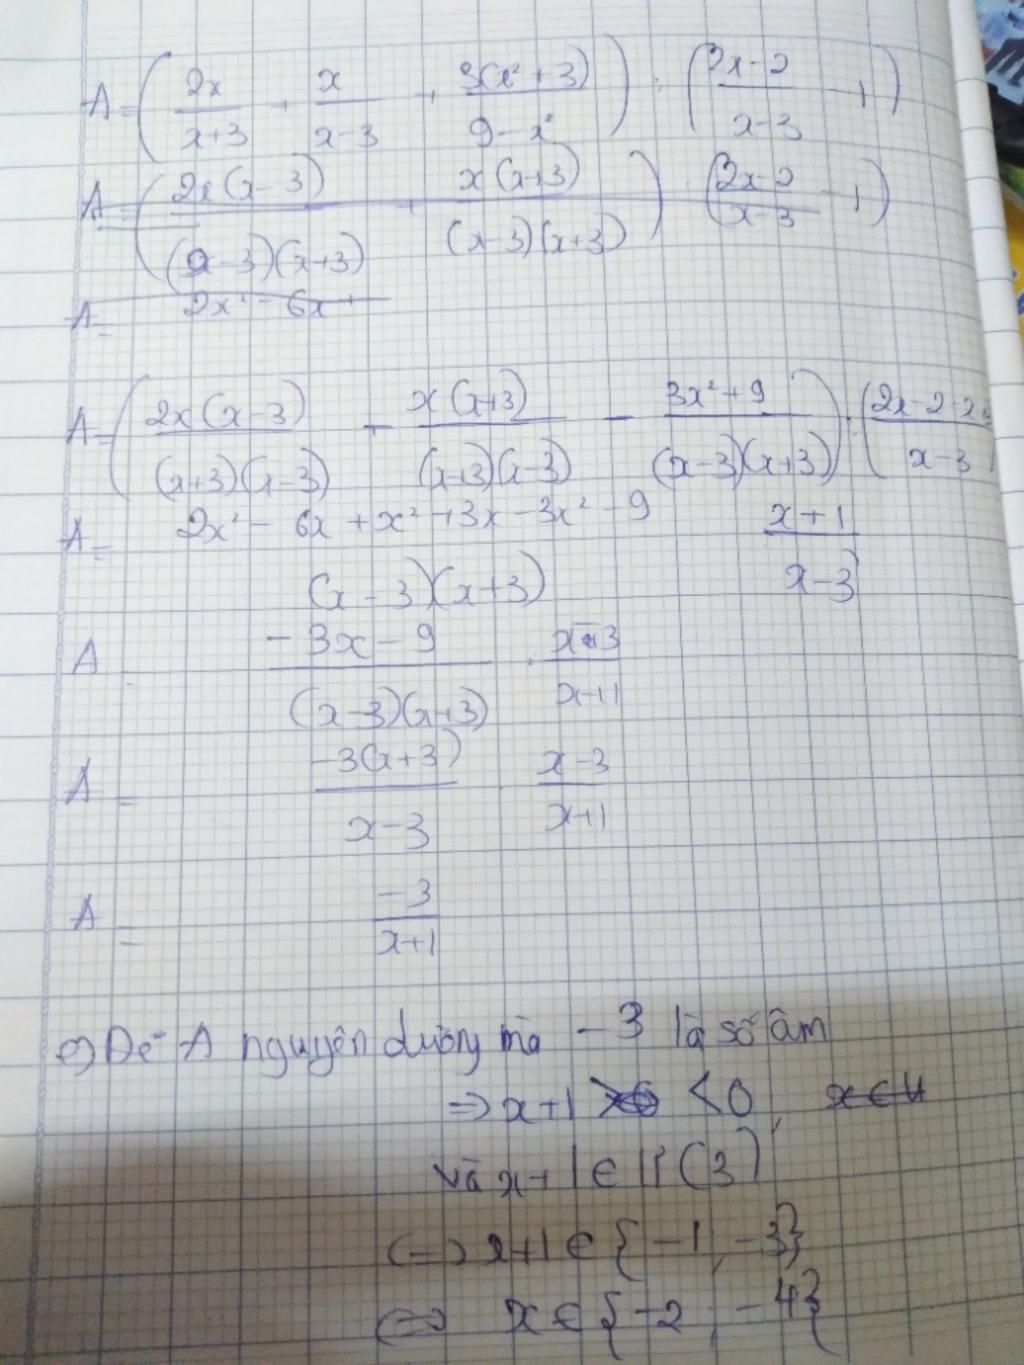 A = ( 2x/(x+3) + x/(x-3) + 3(x²+3)/(9-x²) ) : ( (2x-2)/(x-3) - 1 )
A = ( 2x(x-3)/((x-3)(x+3)) + x(x+3)/((x-3)(x+3)) ) : ( (2x-2)/(x-3) - 1 )
A = 2x² - 6x +
A = ( 2x(x-3)/((x+3)(x-3)) + x(x+3)/((x+3)(x-3)) - (3x²+9)/((x-3)(x+3)) ) : ( (2x-2-x+3)/(x-3) )
A = (2x² - 6x + x² + 3x - 3x² - 9)/((x-3)(x+3)) (x+1)/(x-3)
A = (-3x-9)/((x-3)(x+3)) . (x-3)/(x+1)
A = -3(x+3)/(x-3) . (x-3)/(x+1)
A = -3/(x+1)
e) Để A nguyên dương mà -3 là số âm
=> x+1 < 0,
và x+1 ∈ Ư(3)
<=> x+1 ∈ {-1, -3}
<=> x ∈ {-2, -4}